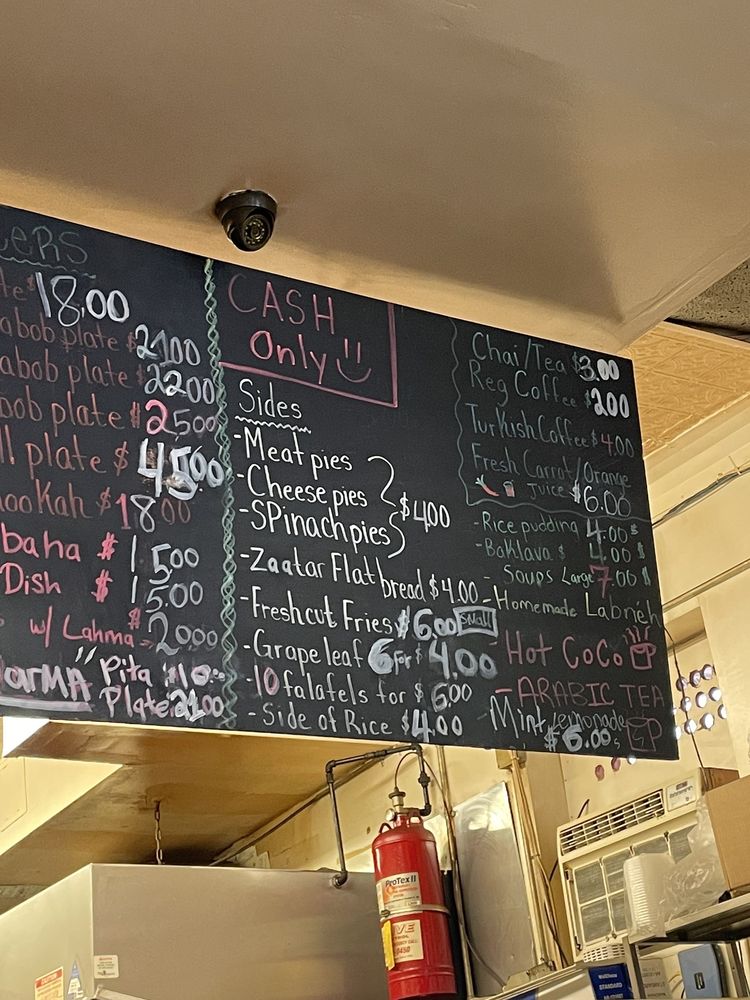 ERS
te $18.00
abob plate $21.00
abob plate $22.00
bob plate $25.00
ll plate $45.00
ookah $18.00
baha $15.00
Dish $15.00
w/ Lahma $20.00
arMA" Pita $10.00
Plate 21.00
CASH
only
Sides
-Meat pies
-Cheese pies
-SPinach pies
$4.00
-Zaatar Flatbread $4.00
-Freshcut Fries $6.00 Small
-Grape leaf 6 for $4.00
-10 falafels for $6.00
-Side of Rice $4.00
Chai/Tea $3.00
Reg Coffee $2.00
Turkish Coffee $4.00
Fresh Carrot/Orange
Juice $6.00
-Rice pudding 4.00$
-Baklava $ 4.00 $
-Soups Large 7.00 $
-Homemade Labneh
-Hot CoCo
-ARABIC TEA
Mint lemonade
$6.00
ProTex II